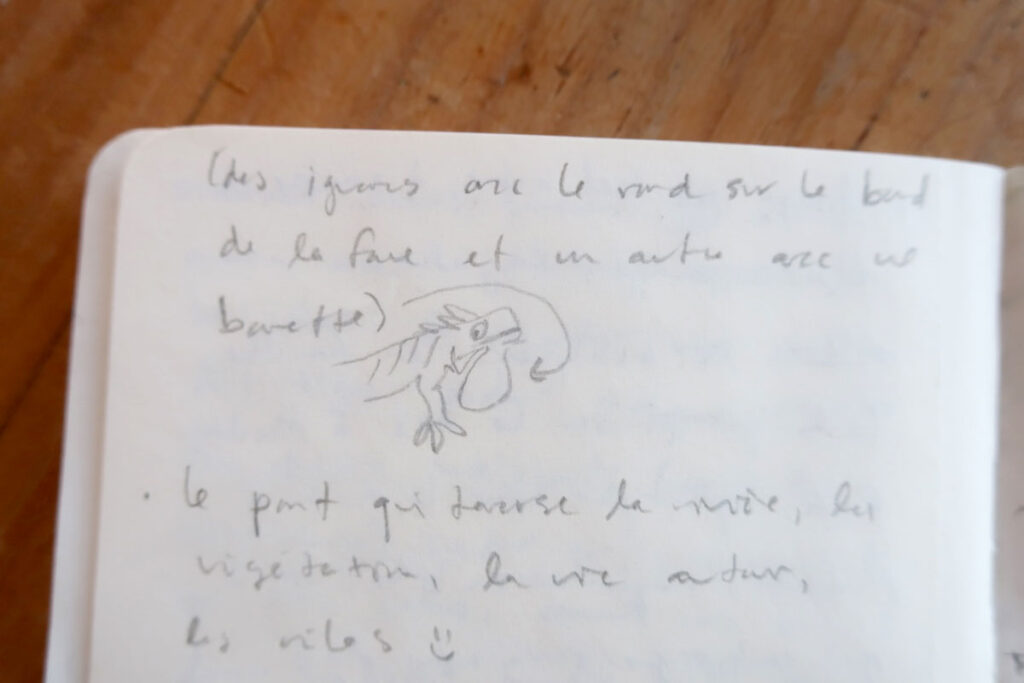 (des iguanes avec le rond sur le bord
de la face et un autre avec une
barrette)
. le pont qui traverse la rivière, la
végétation, la vie autour,
les vélos :)